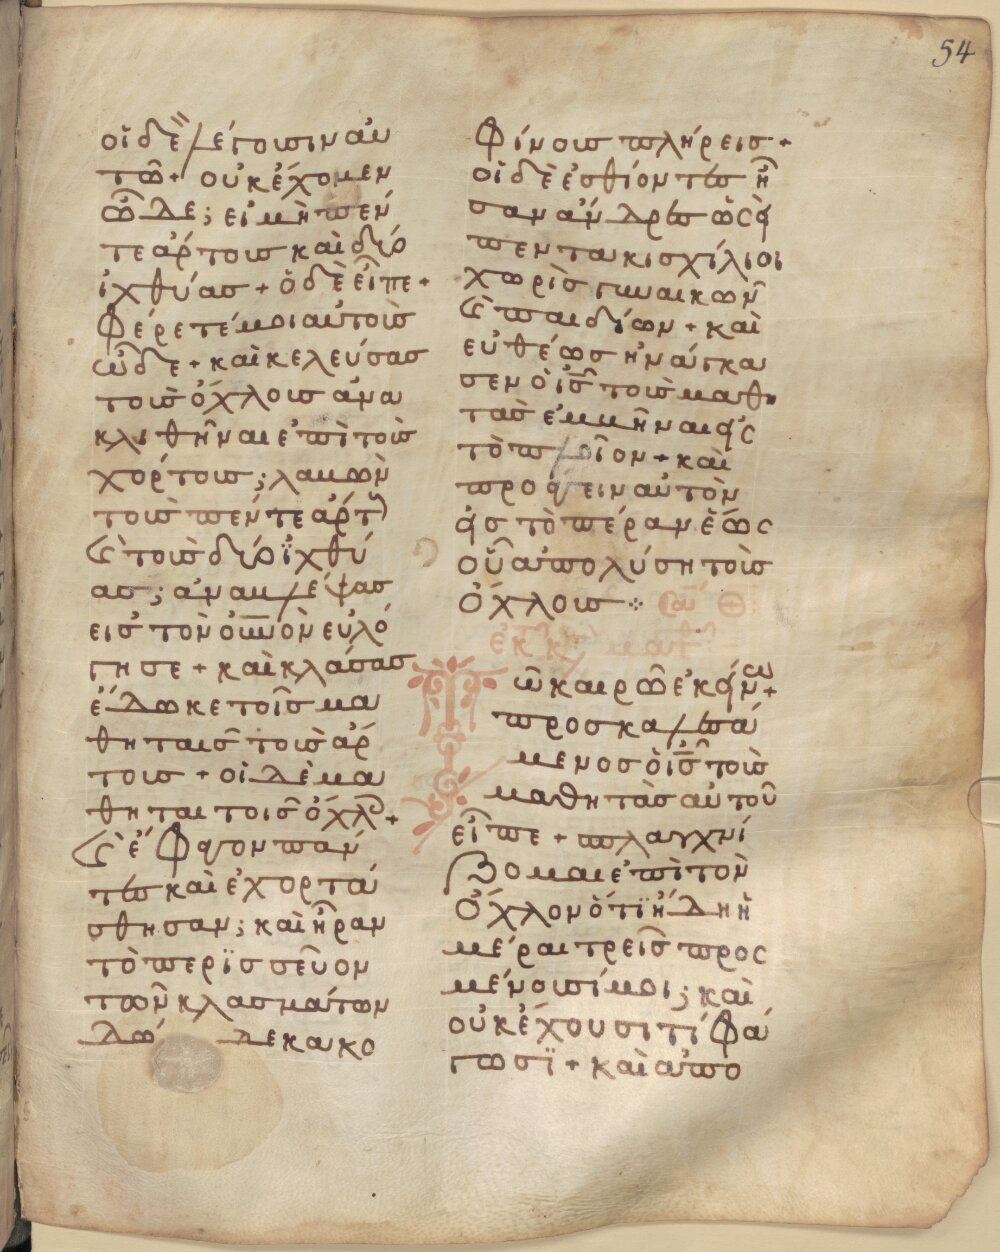 54
οἱ δὲ λέγουσιν αὐ
τῶ + οὐκ ἔχομεν
ὧδε ; εἰ μὴ πέν
τε ἄρτους καὶ δύο
ἰχθύας + ὁ δὲ εἶπε +
Φέρετέ μοι αὐτοὺς
ὧδε + καὶ κελεύσας
τοὺς ὄχλους ἀνα
κλιθῆναι ἐπὶ τοὺς
χόρτους ; λαβὼν
τοὺς πέντε ἄρτ
ϛ τοὺς δύο ἰχθύ
ας ; ἀναβλέψας
εἰς τὸν οὐνὸν εὐλό
γησε + καὶ κλάσας
ἔδωκε τοῖς μα
θηταῖς τοὺς ἄρ
τους + οἱ δὲ μα
θηταὶ τοῖς ὄχλ +
ϛ ἔφαγον πάν
τες καὶ ἐχορτά
σθησαν ; καὶ ἦραν
τὸ περισσεῦον
τῶν κλασμάτων
δώδεκα κο
φίνους πλήρεις +
οἱ δὲ ἐσθίοντες ἦ
σαν ἄνδρες ὡς
πεντακισχίλιοι
χωρὶς γυναικῶν
ϛ παιδίων + καὶ
εὐθέως ἠνάγκα
σεν ὁ ις τοὺς μαθη
τὰς ἐμβῆναι εἰς
τὸ πλοῖον + καὶ
προάγειν αὐτὸν
εἰς τὸ πέραν ἕως
οὗ ἀπολύση τοὺς
ὄχλους ⁘ Θ
ἐκ ματθ
Τῶ καιρῶ ἐκείνω +
προσκαλεσά
μενος ὁ ις τοὺς
μαθητὰς αὐτοῦ
εἶπε + σπλαγχνί
ζομαι ἐπὶ τὸν
ὄχλον ὅτι ἤδη
μέραι τρεῖς προσ
μένουσί μοι ; καὶ
οὐκ ἔχουσι τί φά
γωσι + καὶ ἀπο